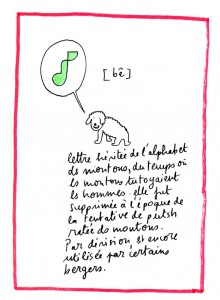 [bê]
lettre héritée de l'alphabet
des moutons, du temps où
les moutons tutoyaient
les hommes. elle fut
supprimée à l'époque de
la tentative de putsh
ratée des moutons.
Par dérision est encore
utilisée par certains
bergers.